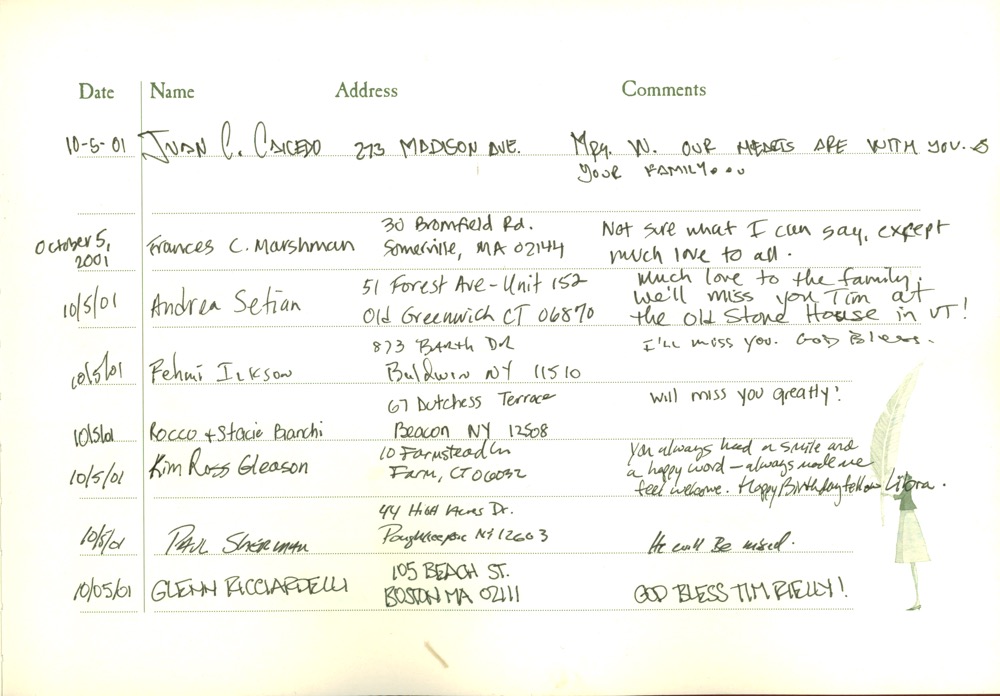 Date Name Address Comments
10-5-01 Juan C. Caicedo 273 MADISON AVE. Mrs. W. OUR HEARTS ARE WITH YOU. &
YOUR FAMILY...
October 5, 2001 Frances C. Marshman 30 Bromfield Rd. Not sure what I can say, except
Somerville, MA 02144 much love to all.
10/5/01 Andrea Setian 51 Forest Ave - Unit 152 Much love to the family.
Old Greenwich CT 06870 We'll miss you Tim at
the Old Stone House in VT!
10/5/01 Fehmi 873 BARTH DR I'll miss you. GOD Bless.
Baldwin NY 11510
10/5/01 Rocco & Stacie Bianchi 67 Dutchess Terrace will miss you greatly!
Beacon NY 12508
10/5/01 Kim Ross Gleason 10 Farmstead Ln You always had a smile and
Farm, CT 06032 a happy word - always made me
feel welcome. Happy Birthday fellow Libra.
10/5/01 PAUL SHERMAN 44 High Acres Dr.
Poughkeepsie NY 12603 He will Be missed.
10/05/01 GLENN RICCIARDELLI 105 BEACH ST.
BOSTON MA 02111 GOD BLESS TIM RIELLY!